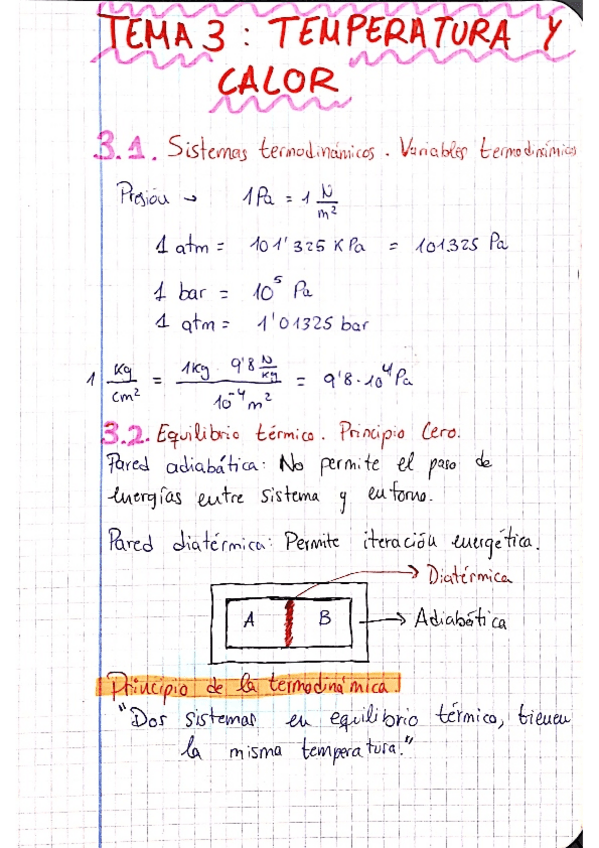 TEMA 3: TEMPERATURA Y
CALOR
3.1. Sistemas termodinámicos. Variables termodinámicas
Presión → 1 Pa = 1 N/m²
1 atm = 101'325 KPa = 101325 Pa
1 bar = 10⁵ Pa
1 atm = 1'01325 bar
1 Kg/cm² = 1Kg · 9'8 N/Kg / 10⁻⁴ m² = 9'8·10⁴ Pa
3.2. Equilibrio térmico. Principio Cero.
Pared adiabática: No permite el paso de
energías entre sistema y entorno.
Pared diatérmica: Permite iteración energética.
→ Diatérmica
A B → Adiabática
Principio de la termodinámica.
"Dos sistemas en equilibrio térmico, tienen
la misma temperatura."